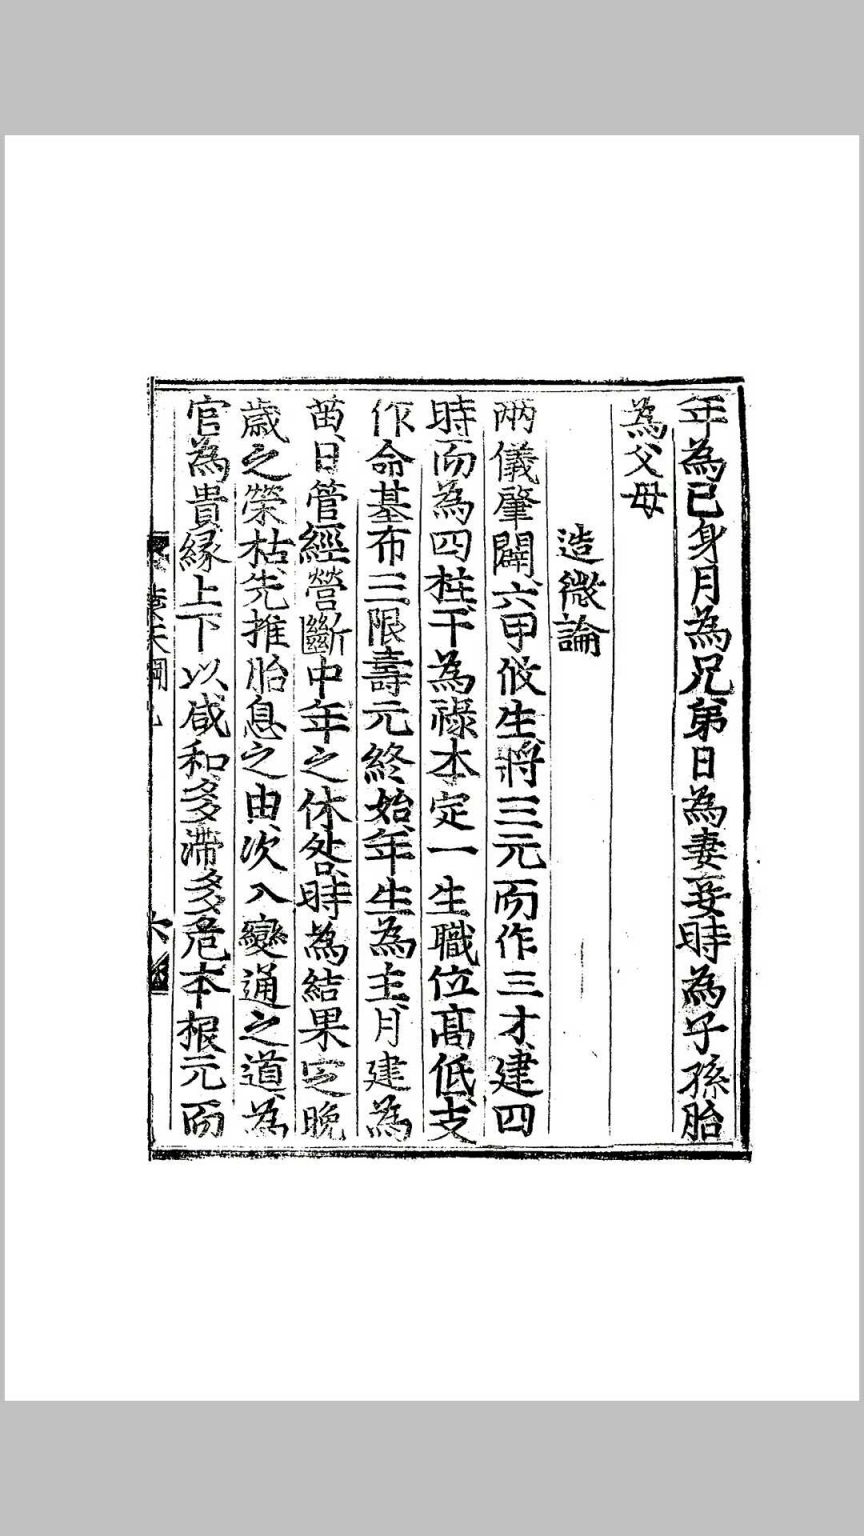 年為已身月為兄弟日為妻妾時為子孫胎
為父母
造微論
兩儀肇闢六甲攸生將三元而作三才建四
時而為四柱干為祿本定一生職位高低支
作命基布三限壽元終始年生為主月建為
苗日管經營斷中年之休咎時為結果定晚
歲之榮枯先推胎息之由次入變通之道為
官為貴緣上下以咸和多滯多危本根元而
天綱
六